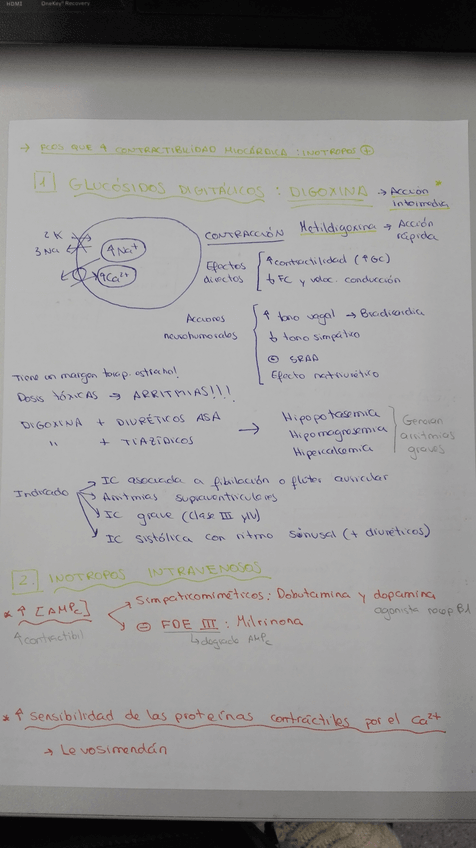 HOME OneKey® Recovery
→ FCOS QUE ↑ CONTRACTIBILIDAD MIOCÁRDICA : INOTROPOS ⊕
1 GLUCÓSIDOS DIGITÁLICOS : DIGOXINA → Acción intermedia
Metildigoxina → Acción rápida
2K
3Na
↑Na+
↑Ca2+
CONTRACCIÓN
Efectos directos
↑contractilidad (↑GC)
↓ FC y veloc. conducción
Acciones neurohumorales
↑ tono vagal → Bradicardia
↓ tono simpático
⊖ SRAA
Efecto natriurético
Tiene un margen terap. estrecho!
Dosis tóxicas → ARRITMIAS!!!
DIGOXINA + DIURÉTICOS ASA
" + TIAZÍDICOS
→ Hipopotasemia
Hipomagnosemia
Hipercalcemia
Generan arritmias graves
Indicado
→ IC asociada a fibilación o fluter auricular
→ Arritmias supraventriculares
→ IC grave (Clase III y IV)
→ IC sistólica con ritmo sinusal (+ diuréticos)
2. INOTROPOS INTRAVENOSOS
* ↑ [AMPc]
↑contractibil
→ Simpaticomiméticos : Dobutamina y dopamina
agonista recep β1
→ ⊖ FDE III : Milrinona
↳ degrada AMPc
* ↑ sensibilidad de las proteínas contráctiles por el Ca2+
→ Levosimendán